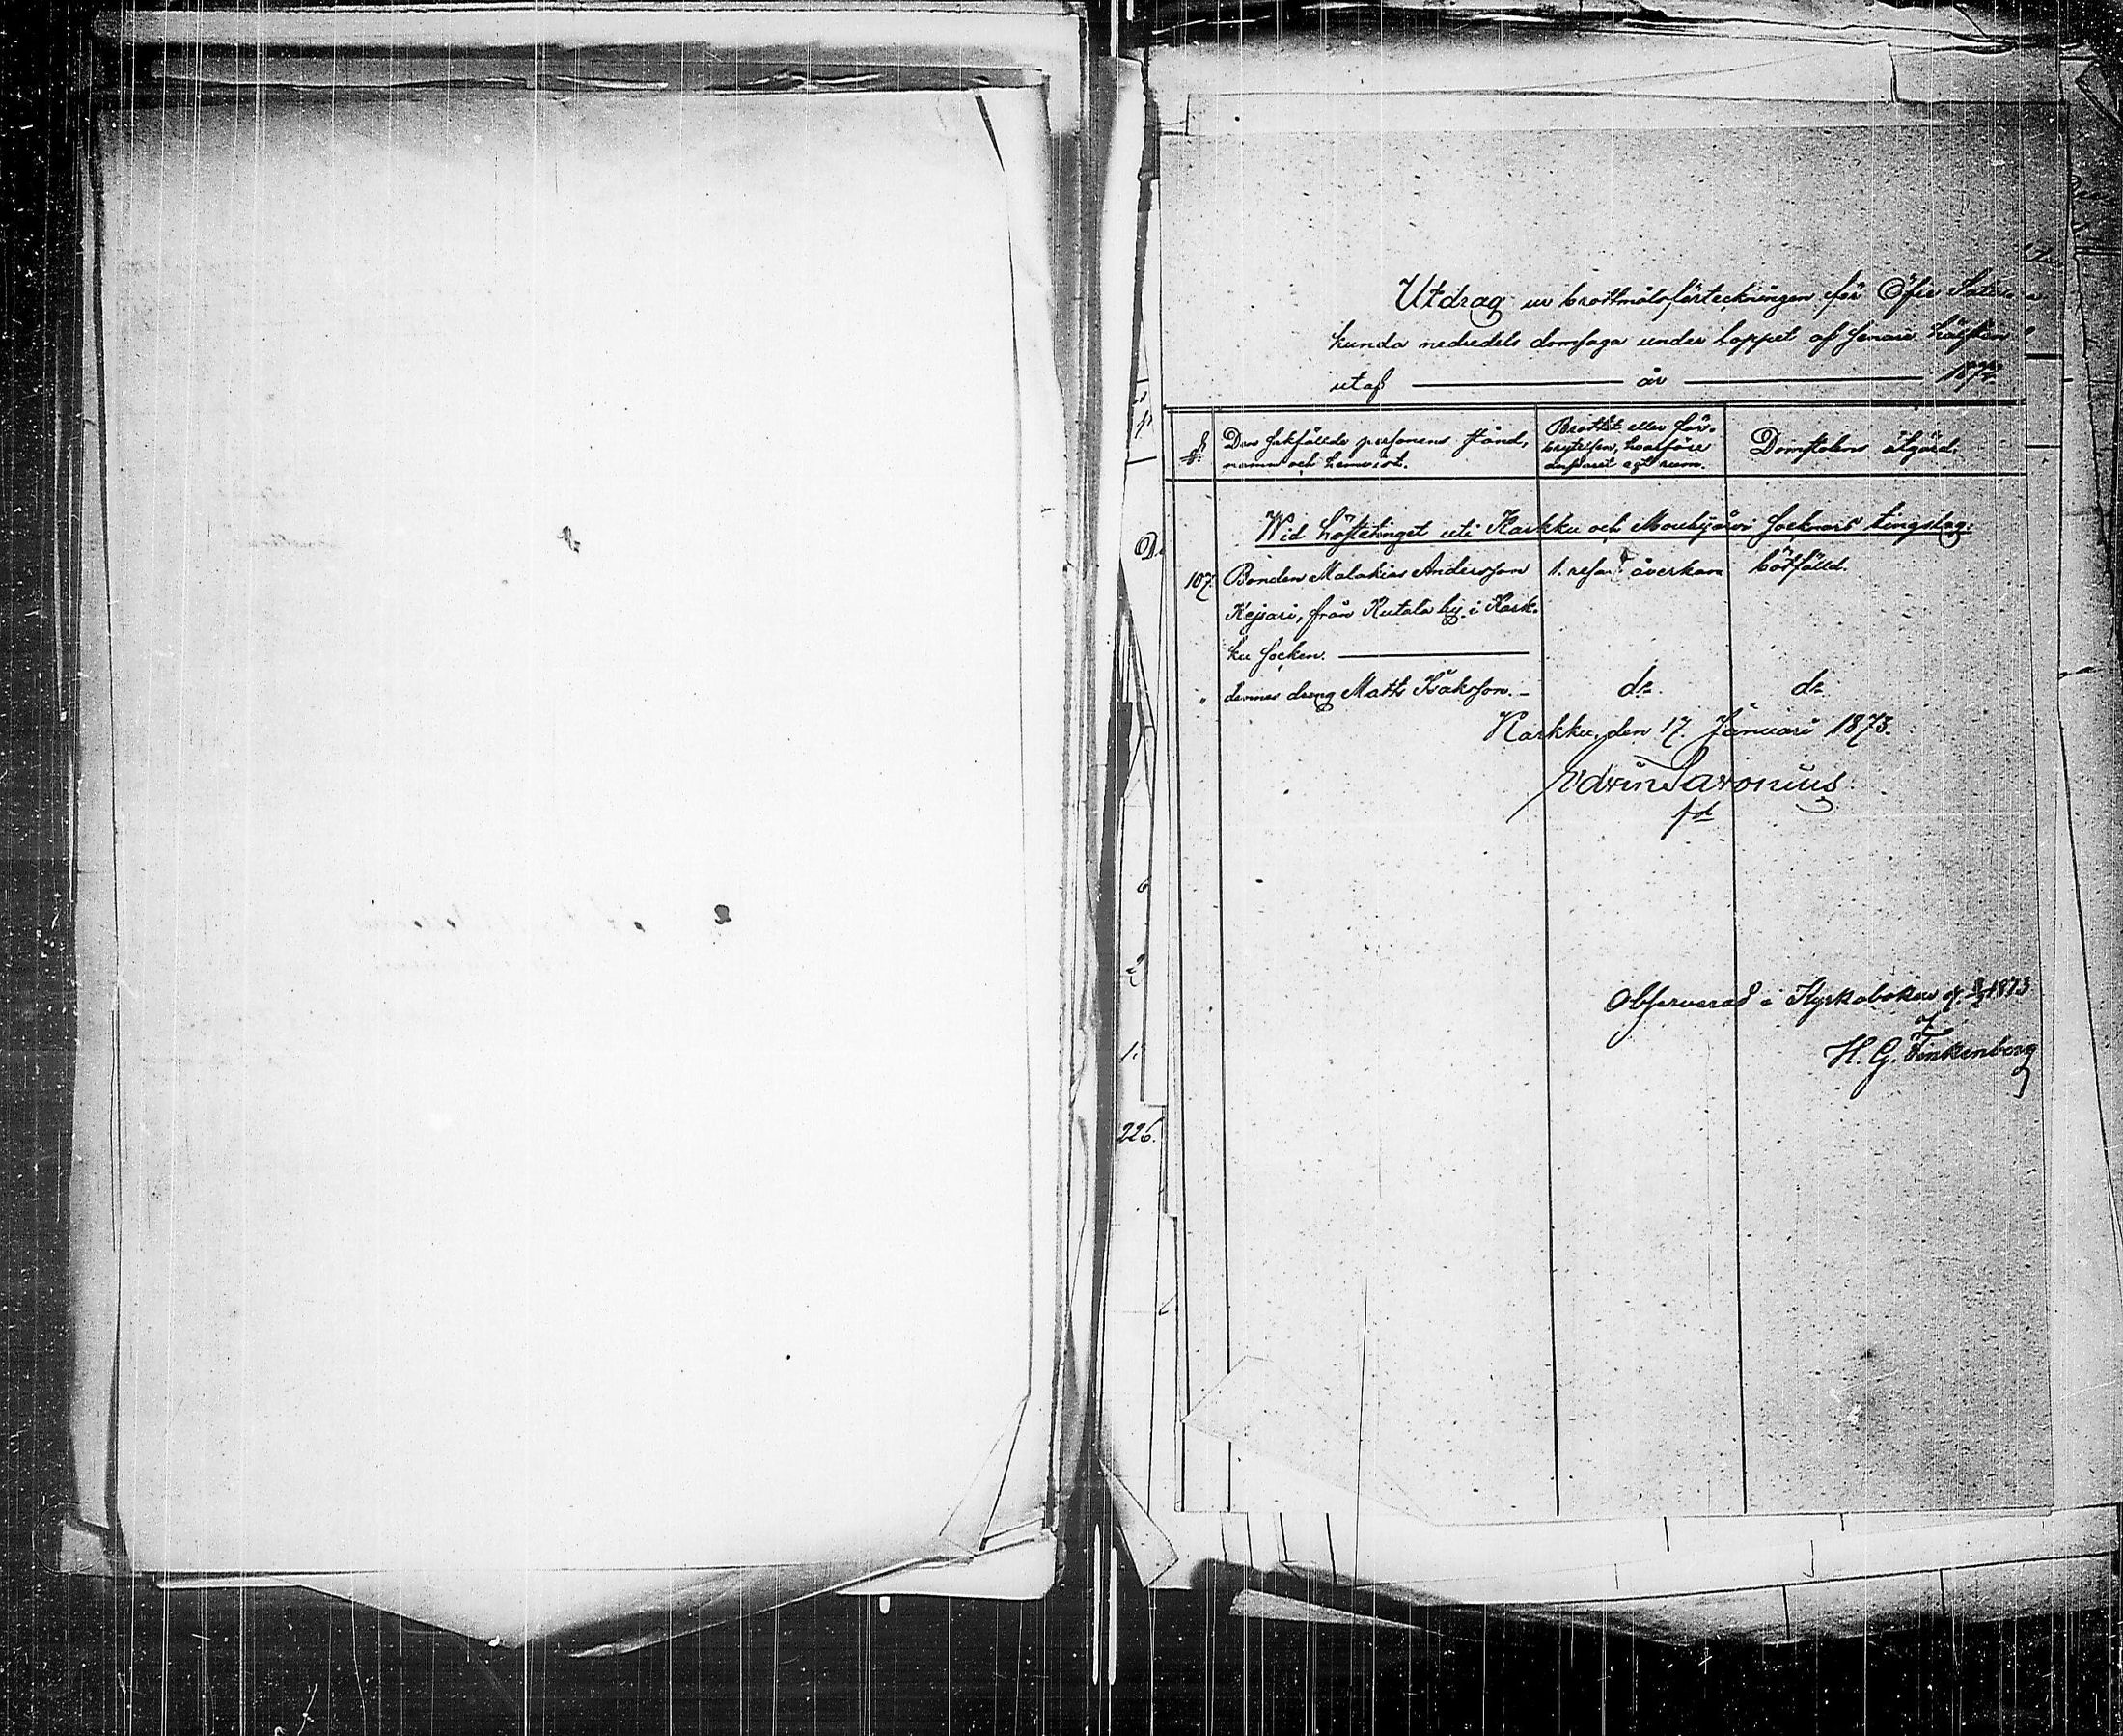 Utdrag ur brottmålsförteckningen för Öfre Sata-
kunda nedredels domsaga under loppet af senare hälften
utaf ——— år ——— 1872.
§
Den sakfällde personens stånd,
namn och hemvist.
Brottet eller för-
brytelsen, hvarföre
ansvaret egt rum.
Domstolens åtgärd.
Wid höstetinget uti Karkku och Mouhijärvi socknars tingslag:
107. Bonden Malakias Andersson 1. resan åverkan bötfälld.
Kejsari, från Kutala by i Kark-
ku socken. ———
" dennes dreng Matts Isaksson. — do. do.
Karkku, den 17. Januari 1873.
Edvin Savonius
fd
Observerad i Kyrkoboken d. 1873
H. G. Finkenberg
226.